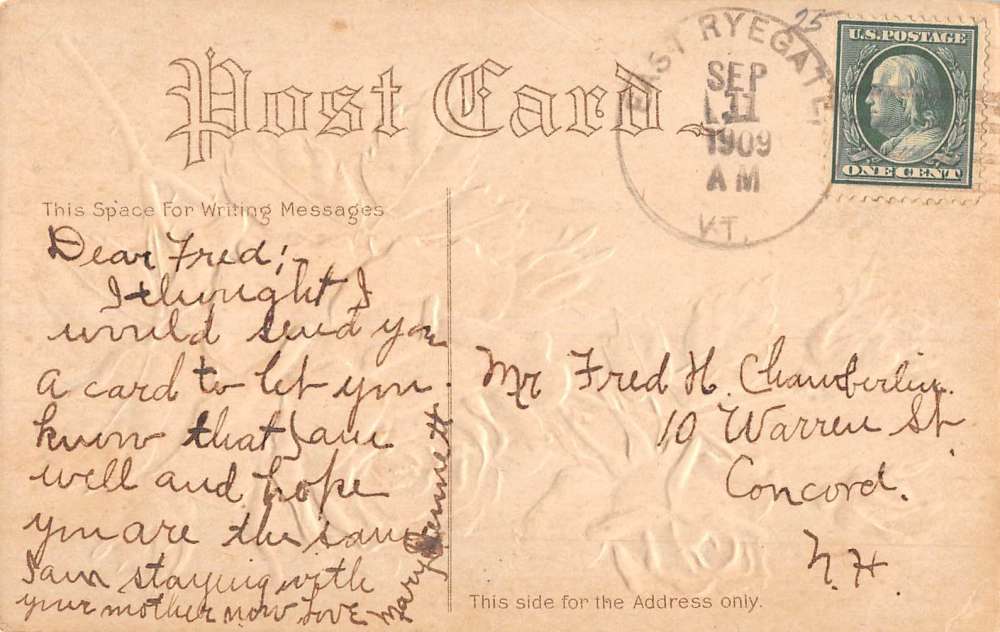 Post Card
25
EAST RYEGATE,
SEP
11
1909
AM
VT.
U.S. POSTAGE
ONE CENT
This Space For Writing Messages
Dear Fred;-
I thought I
would send you
a card to let you
know that I am
well and hope
you are the same
I am staying with
your mother now Love
Mary Bennett
Mr Fred H. Chamberlin.
10 Warren St
Concord.
N.H
This side for the Address only.